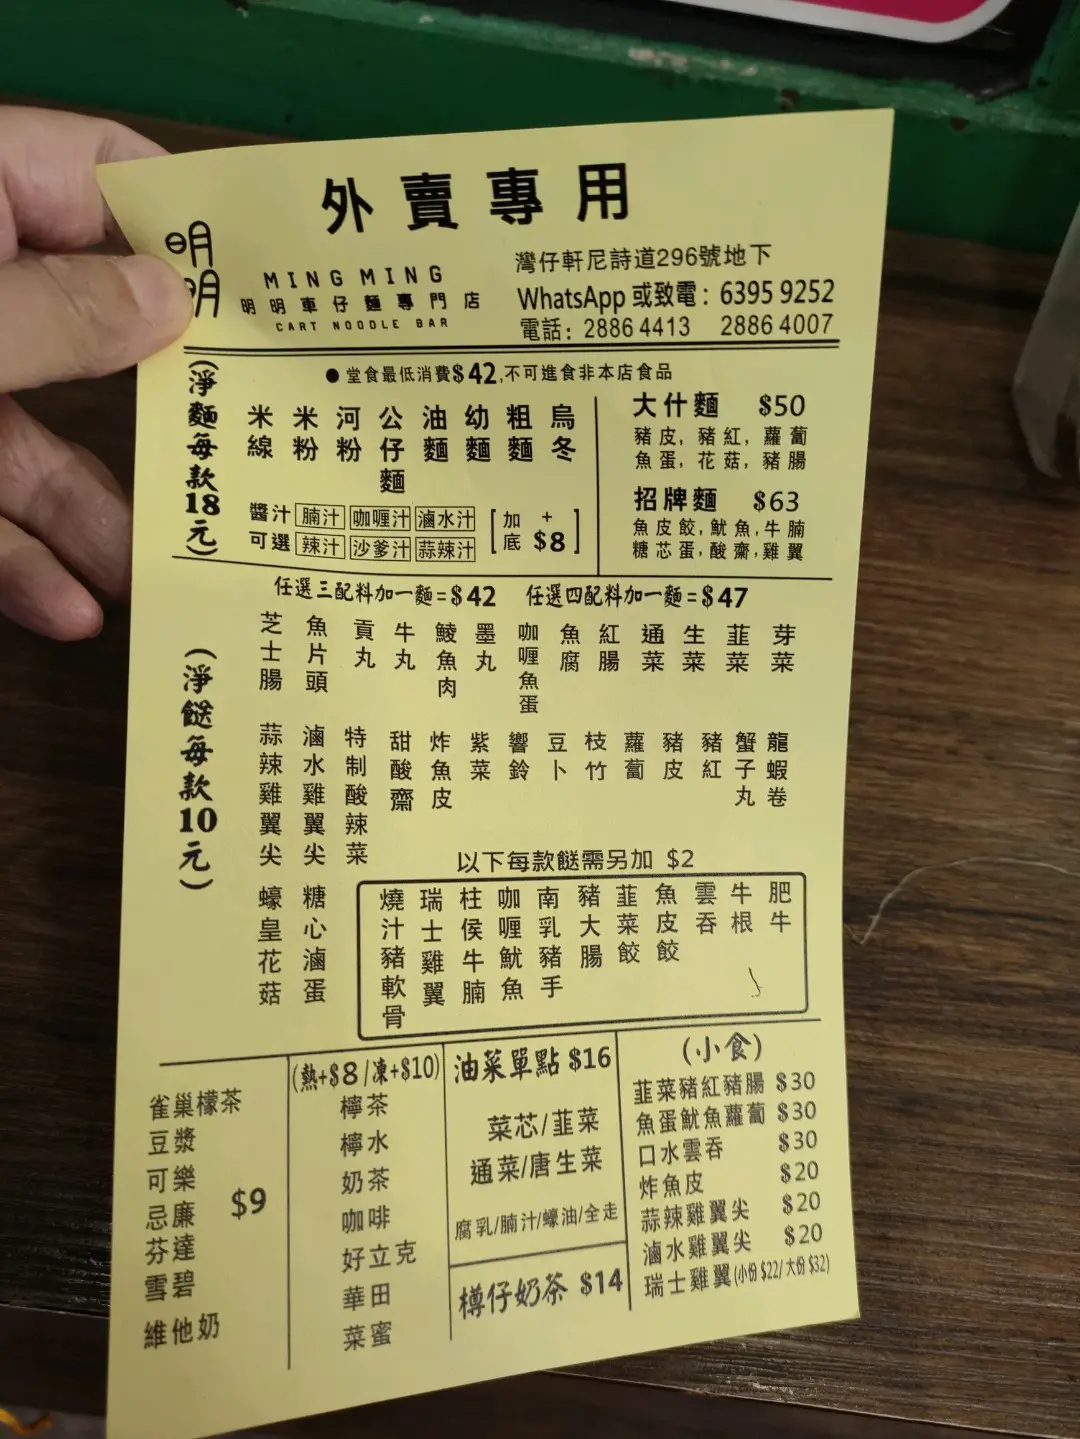 外賣專用
明明
MING MING
明明車仔麵專門店
CART NOODLE BAR
灣仔軒尼詩道296號地下
WhatsApp 或致電：6395 9252
電話：2886 4413 2886 4007
●堂食最低消費$42,不可進食非本店食品
(淨麵每款18元)
米線
米粉
河粉
公仔麵
油麵
幼麵
粗麵
烏冬
醬汁可選
腩汁 咖喱汁 滷水汁
辣汁 沙爹汁 蒜辣汁
[加底 + $8]
大什麵 $50
豬皮, 豬紅, 蘿蔔
魚蛋, 花菇, 豬腸
招牌麵 $63
魚皮餃, 魷魚, 牛腩
糖芯蛋, 酸齋, 雞翼
任選三配料加一麵=$42 任選四配料加一麵=$47
(淨餸每款10元)
芝士腸
魚片頭
貢丸
牛丸
鯪魚肉
墨丸
咖喱魚蛋
魚腐
紅腸
通菜
生菜
韮菜
芽菜
蒜辣雞翼尖
滷水雞翼尖
特制酸辣菜
甜酸齋
炸魚皮
紫菜
響鈴
豆卜
枝竹
蘿蔔
豬皮
豬紅
蟹子丸
龍蝦卷
蠔皇花菇
糖心滷蛋
以下每款餸需另加 $2
燒汁豬軟骨
瑞士雞翼
柱侯牛腩
咖喱魷魚
南乳豬手
豬大腸
韮菜餃
魚皮餃
雲吞
牛根
肥牛
雀巢檬茶
豆漿
可樂
忌廉
芬達
雪碧
維他奶
$9
(熱+$8/凍+$10)
檸茶
檸水
奶茶
咖啡
好立克
華田
菜蜜
油菜單點 $16
菜芯/韮菜
通菜/唐生菜
腐乳/腩汁/蠔油/全走
樽仔奶茶 $14
(小食)
韮菜豬紅豬腸 $30
魚蛋魷魚蘿蔔 $30
口水雲吞 $30
炸魚皮 $20
蒜辣雞翼尖 $20
滷水雞翼尖 $20
瑞士雞翼(小份 $22/大份 $32)